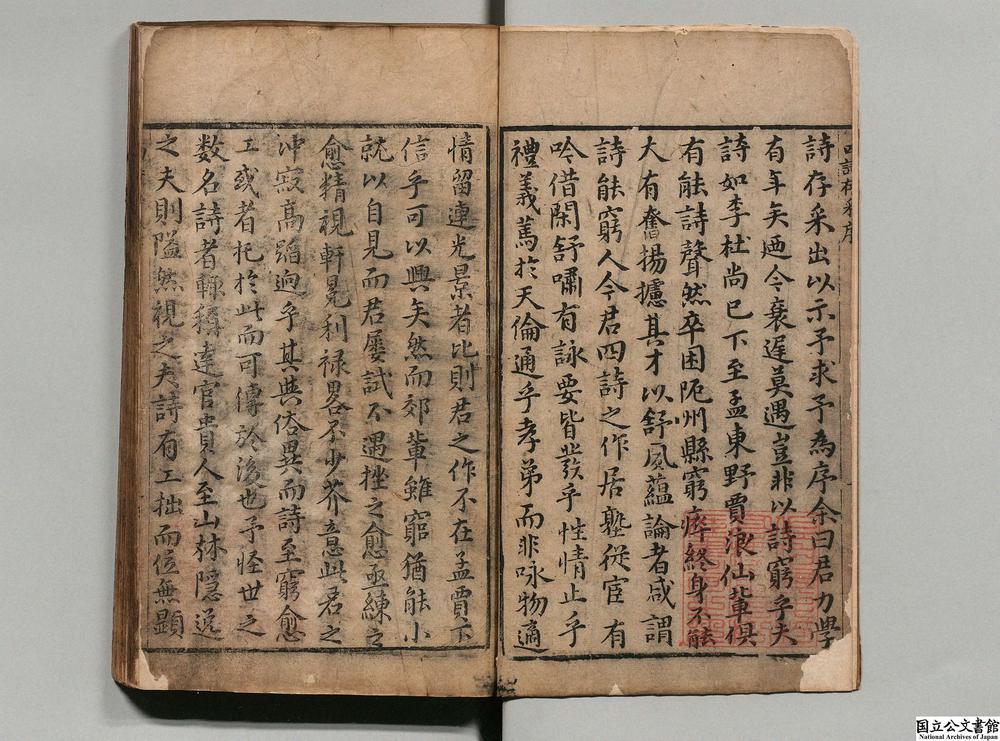 詩存采出以示予求予為序余曰君力學
有年矣迺今衰遲莫遇豈非以詩窮乎夫
詩如李杜尚已下至孟東野賈浪仙輩俱
有能詩聲然卒困阨州縣窮瘁終身不能
大有奮揚攄其才以舒風蘊論者咸謂
詩能窮人今君四詩之作居塾從宦有
吟借閑舒嘯有詠要皆發乎性情止乎
禮義篤於天倫通乎孝弟而非咏物適
情留連光景者比則君之作不在孟賈下
信乎可以興矣然而郊輩雖窮猶能小
就以自見而君屢試不遇挫之愈亟練之
愈精視軒冕利禄畧不少芥意此君之
冲寂高蹈逈乎其與俗異而詩至窮愈
工或者托於此而可傳於後也予怪世之
数名詩者輙稱達官貴人至山林隱逸
之夫則隘然視之夫詩有工拙而位無顯
国立公文書館
National Archives of Japan